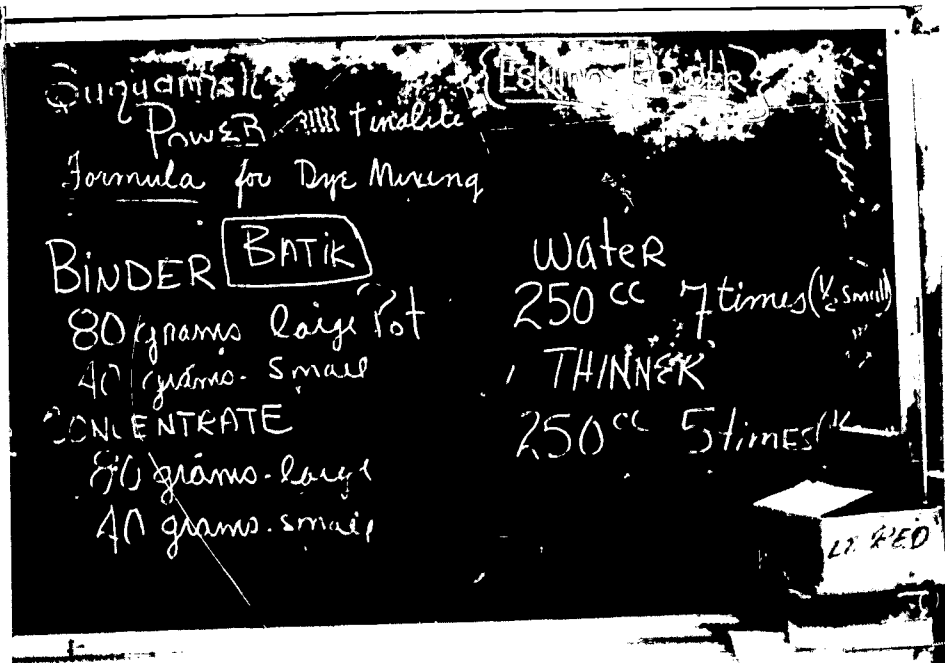 Suquamish
{Eskimo Power}
Power Tinalite
Formula for Dye Mixing
BINDER BATIK
80 grams large Pot
40 grams. small
CONCENTRATE
80 grams. large
40 grams. small
Water
250 cc 7 times (½ small)
THINNER
250 cc 5 times (½
LT. RED